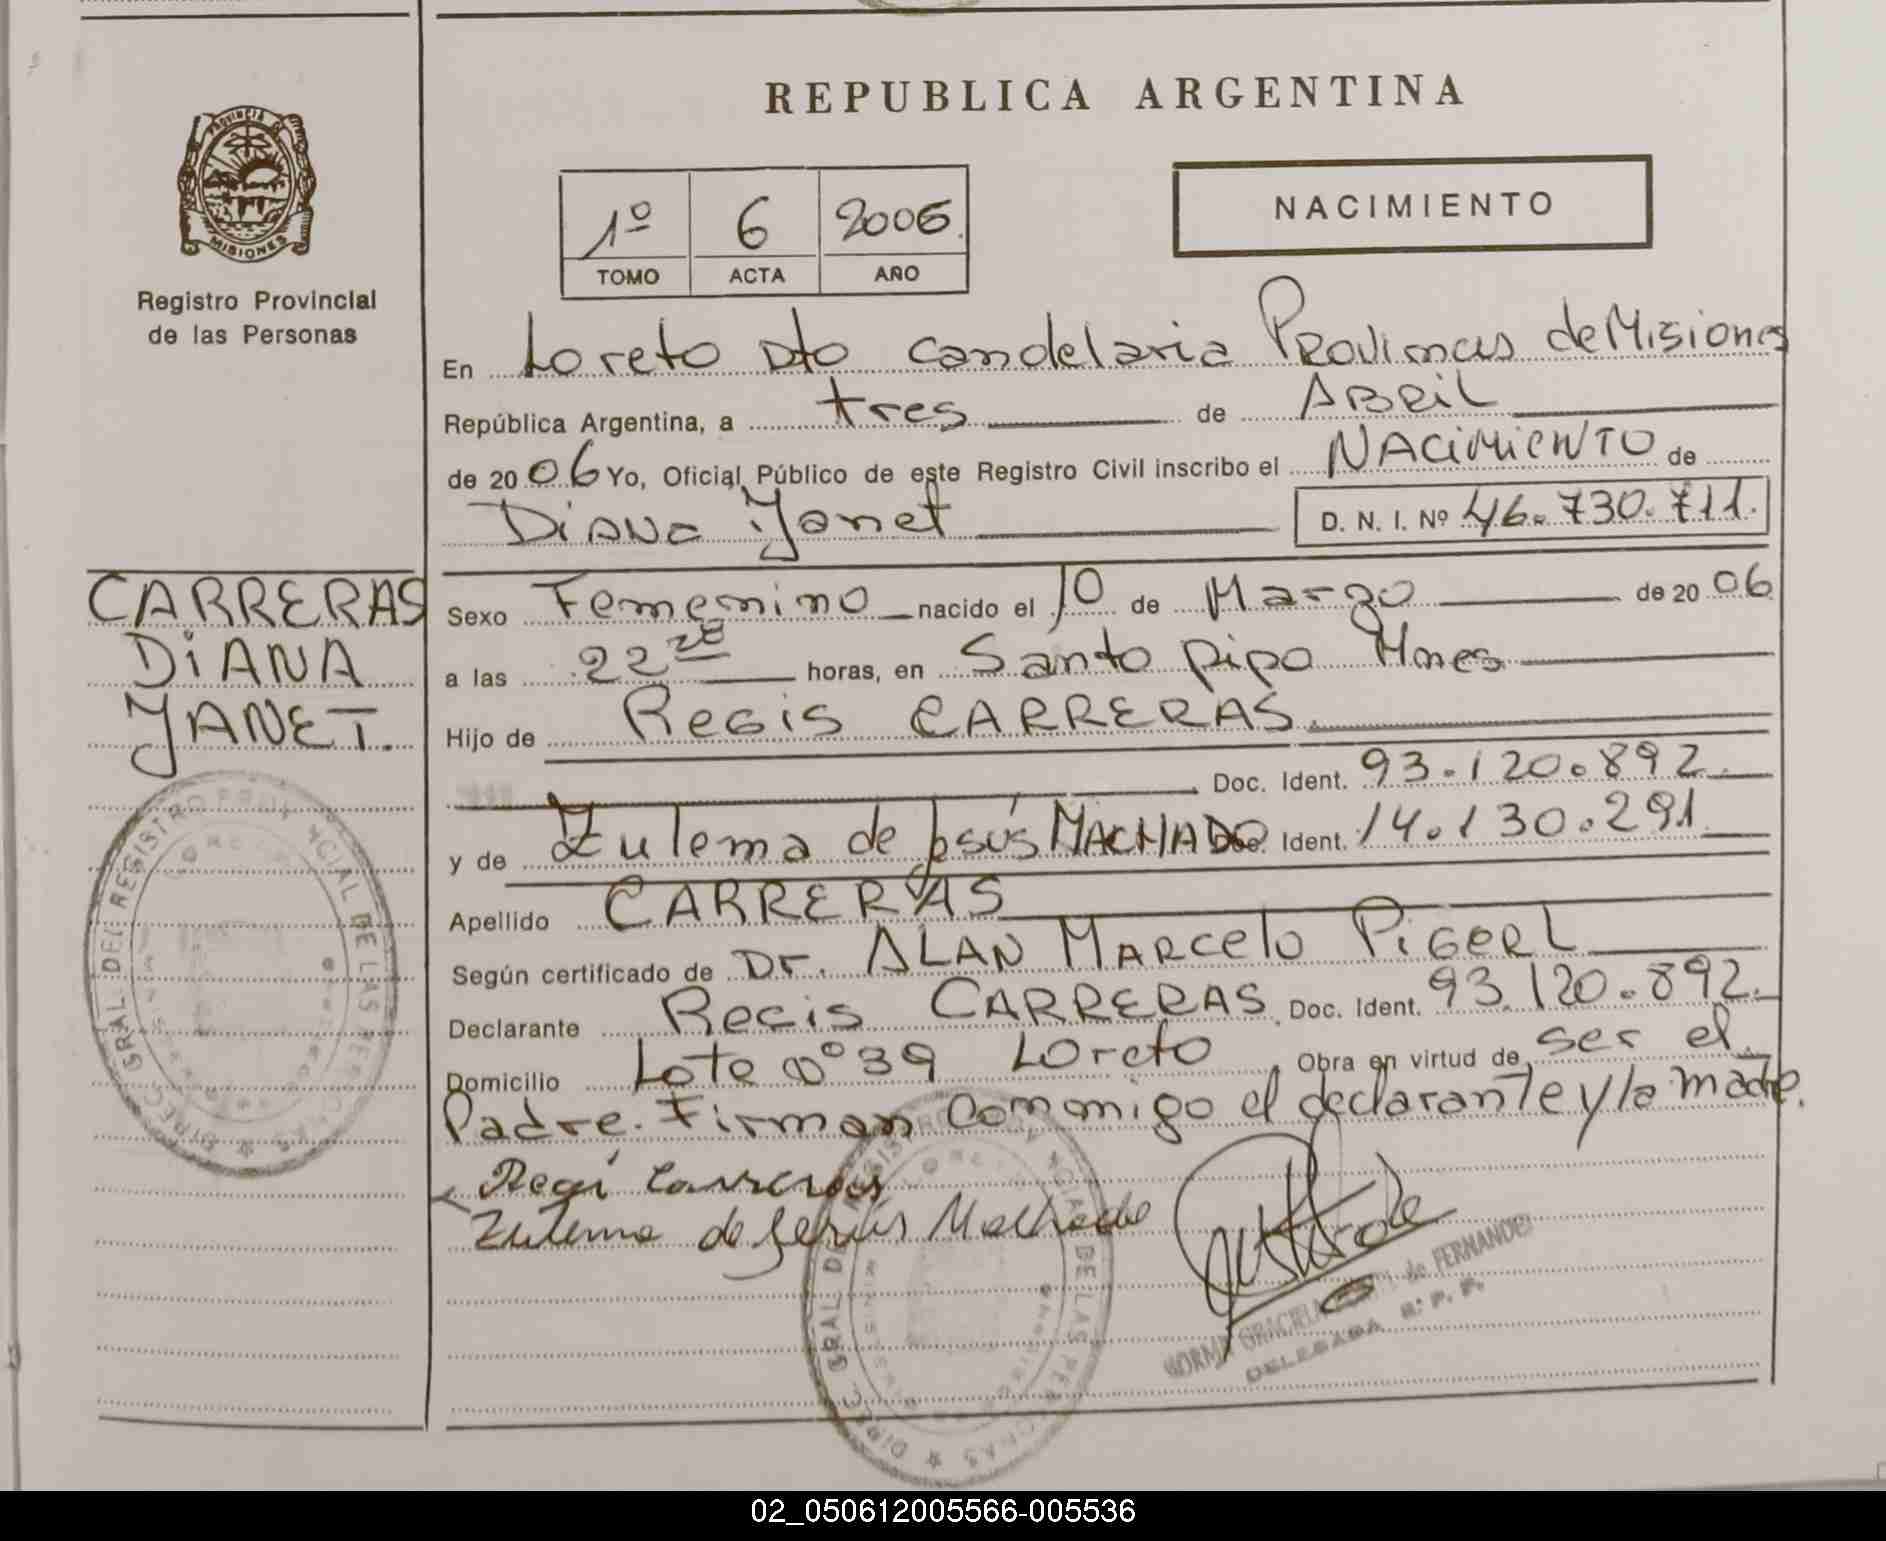 REPUBLICA ARGENTINA
PROVINCIA DE
MISIONES
Registro Provincial
de las Personas
1º 6 2006
TOMO ACTA AÑO
NACIMIENTO
En Loreto Dto Candelaria Provincias de Misiones
República Argentina, a tres de ABRIL
de 2006 Yo, Oficial Público de este Registro Civil inscribo el NACIMIENTO de
DIANA Janet D. N. I. Nº 46.730.711.
CARRERAS
DIANA
JANET.
Sexo Femenino nacido el 10 de Marzo de 2006
a las 22 28 horas, en Santo pipo Mnes
Hijo de Regis CARRERAS.
Doc. Ident. 93.120.892
y de Zulema de Jesús MACHADO Doc. Ident. 14.130.291
Apellido CARRERAS
Según certificado de Dr. ALAN MARCELO PIGERL
Declarante Regis CARRERAS Doc. Ident. 93.120.892.
Domicilio Lote nº 39 Loreto Obra en virtud de ser el
Padre. Firman conmigo el declarante y la madre.
Regi Carreras
Zulema de Jesús Machado
NORMA GRACIELA de FERNANDEZ
DELEGADA R. P. P.
DIREC. GRAL. DEL REGISTRO PROVINCIAL DE LAS PERSONAS
LORETO
MISIONES
DIREC. GRAL. DEL REGISTRO PROVINCIAL DE LAS PERSONAS
LORETO
MISIONES
02_050612005566-005536